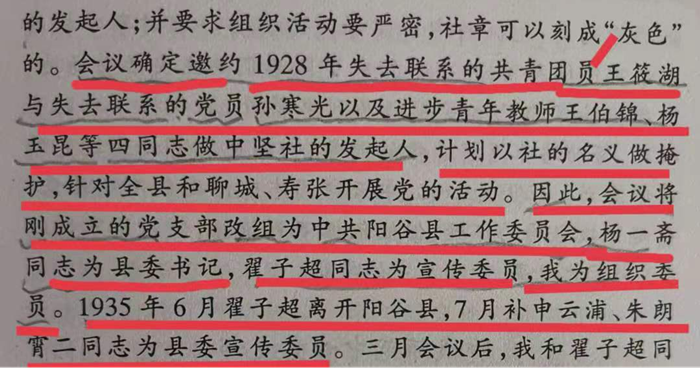 的发起人;并要求组织活动要严密,社章可以刻成“灰色”
的。会议确定邀约1928年失去联系的共青团员王筱湖
与失去联系的党员孙寒光以及进步青年教师王伯锦、杨
玉昆等四同志做中坚社的发起人,计划以社的名义做掩
护,针对全县和聊城、寿张开展党的活动。因此,会议将
刚成立的党支部改组为中共阳谷县工作委员会,杨一斋
同志为县委书记,翟子超同志为宣传委员,我为组织委
员。1935年6月翟子超离开阳谷县,7月补申云浦、朱朗
霄二同志为县委宣传委员。三月会议后,我和翟子超同